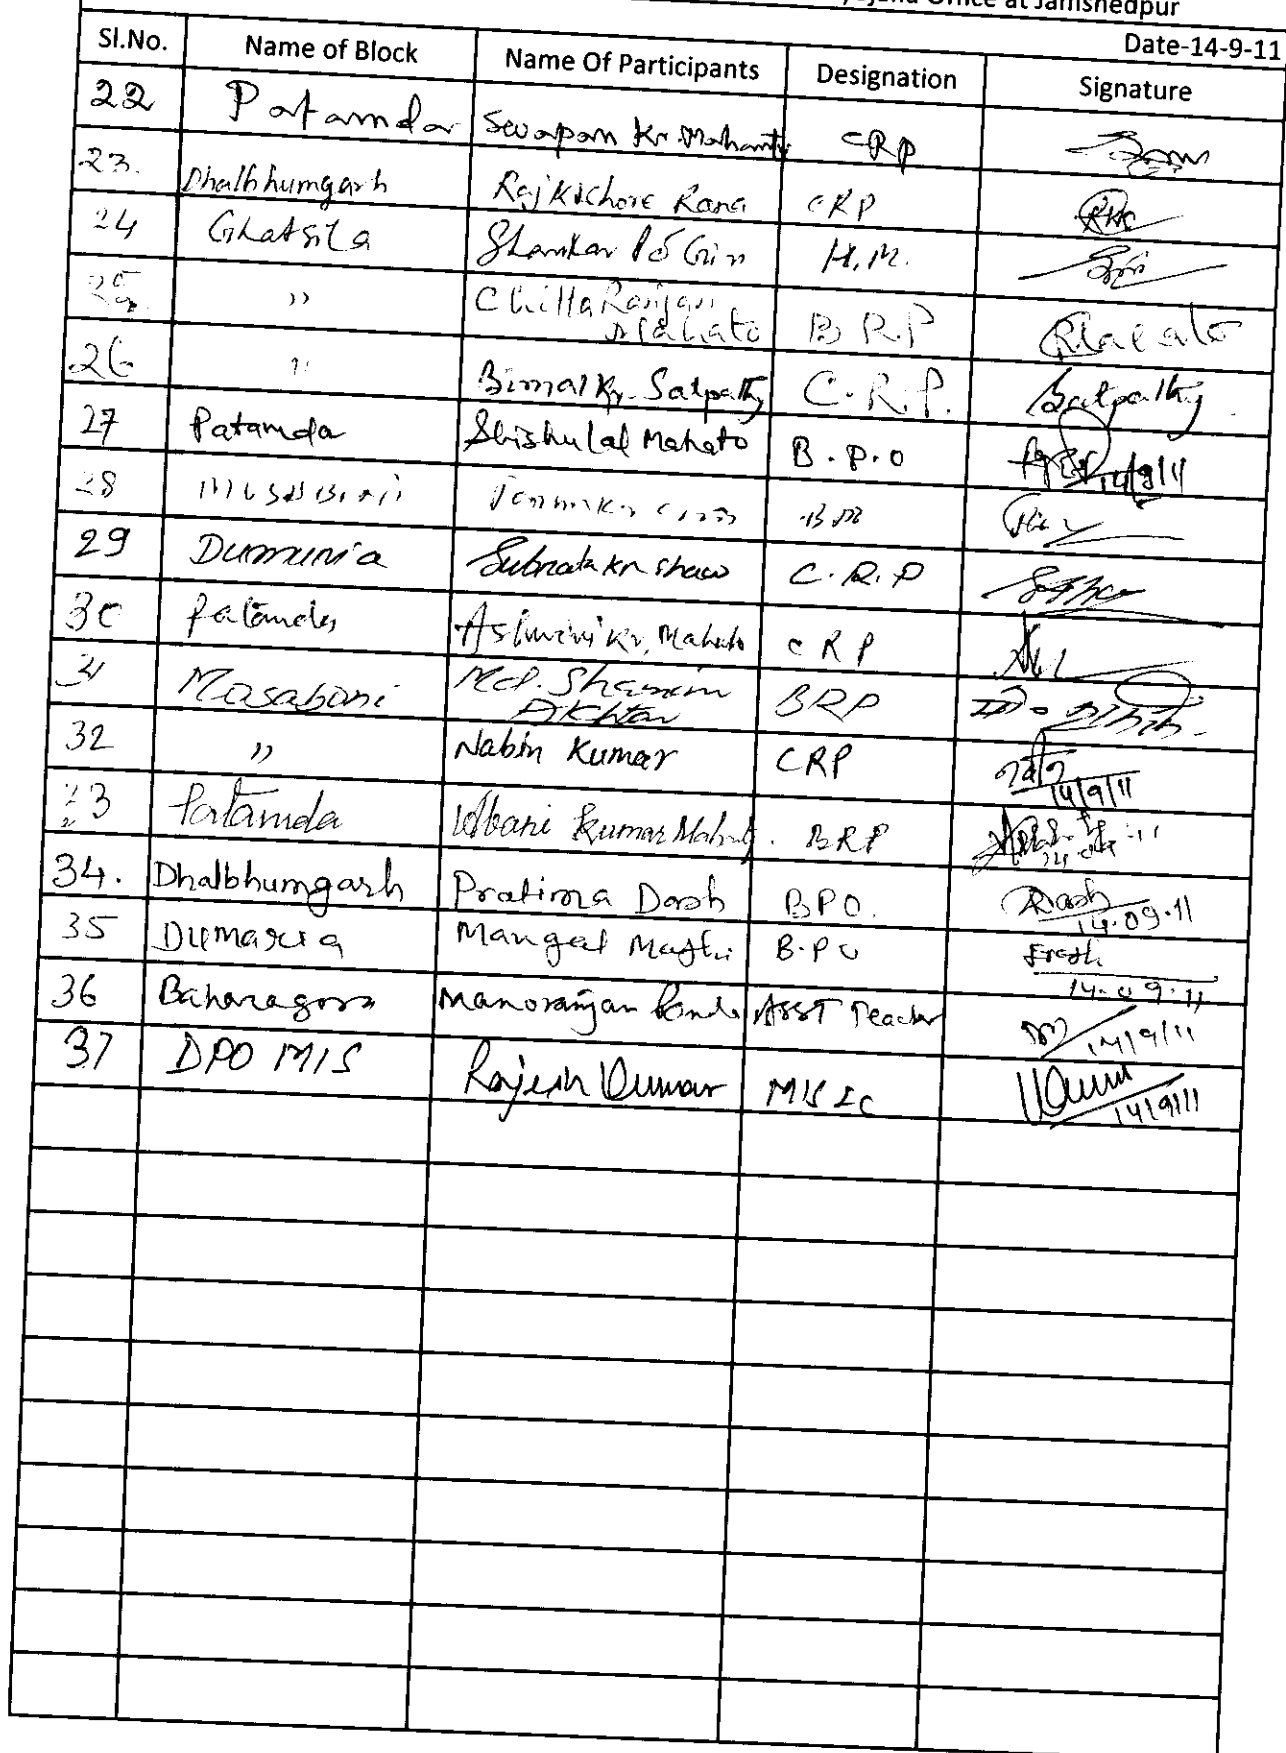 Office at Jamshedpur
Date-14-9-11
Sl.No. Name of Block Name Of Participants Designation Signature
22 Patamda Swapan Kr. Mahanty CRP
23. Dhalbhumgarh Raj Kishore Rana CRP
24 Ghatsila Shankar Pd Giri H.M.
25 " Chitta Ranjan
Mahato B R.P
26 " Bimal Kr. Satpathy C.R.P. Satpathy
27 Patamda Shishulal Mahato B.P.O 14/9/11
28
29 Dumuria Subrata Kr Shaw C.R.P
30 Patamda Ashwini Kr. Mahato CRP
31 Mosaboni Md. Shamim
Akhtar BRP
32 " Nabin Kumar CRP 14/9/11
33 Patamda Kumar Mahato BRP
34. Dhalbhumgarh Pratima Dash BPO. Dash
14.09.11
35 Dumaria Mangal Majhi B.P O
14.09.11
36 Baharagora Manoranjan Asst Teacher 14/9/11
37 DPO MIS Rajesh Kumar MIS Ic Kumar
14/9/11